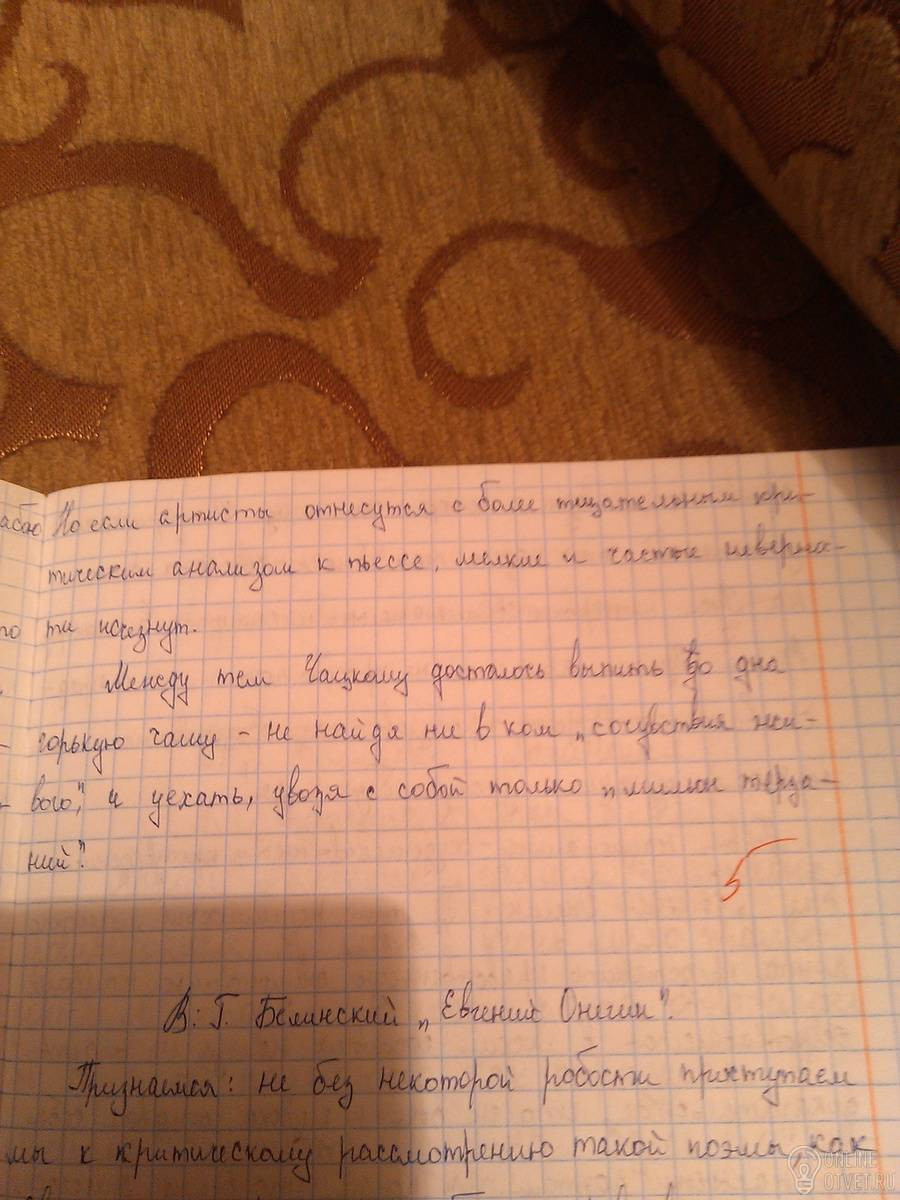 Но если артисты отнесутся с более тщательным кри-
тическим анализом к пьессе, мелкие и частые неверно-
сти исчезнут.
Между тем Чацкому досталось выпить до дна
горькую чашу - не найдя ни в ком „сочувствия жи-
вого", и уехать, увозя с собой только „мильон терза-
ний".
5
В. Г. Белинский „Евгений Онегин".
Признаемся: не без некоторой робости приступаем
мы к критическому рассмотрению такой поэмы, как
ONLINE
OTVET.RU